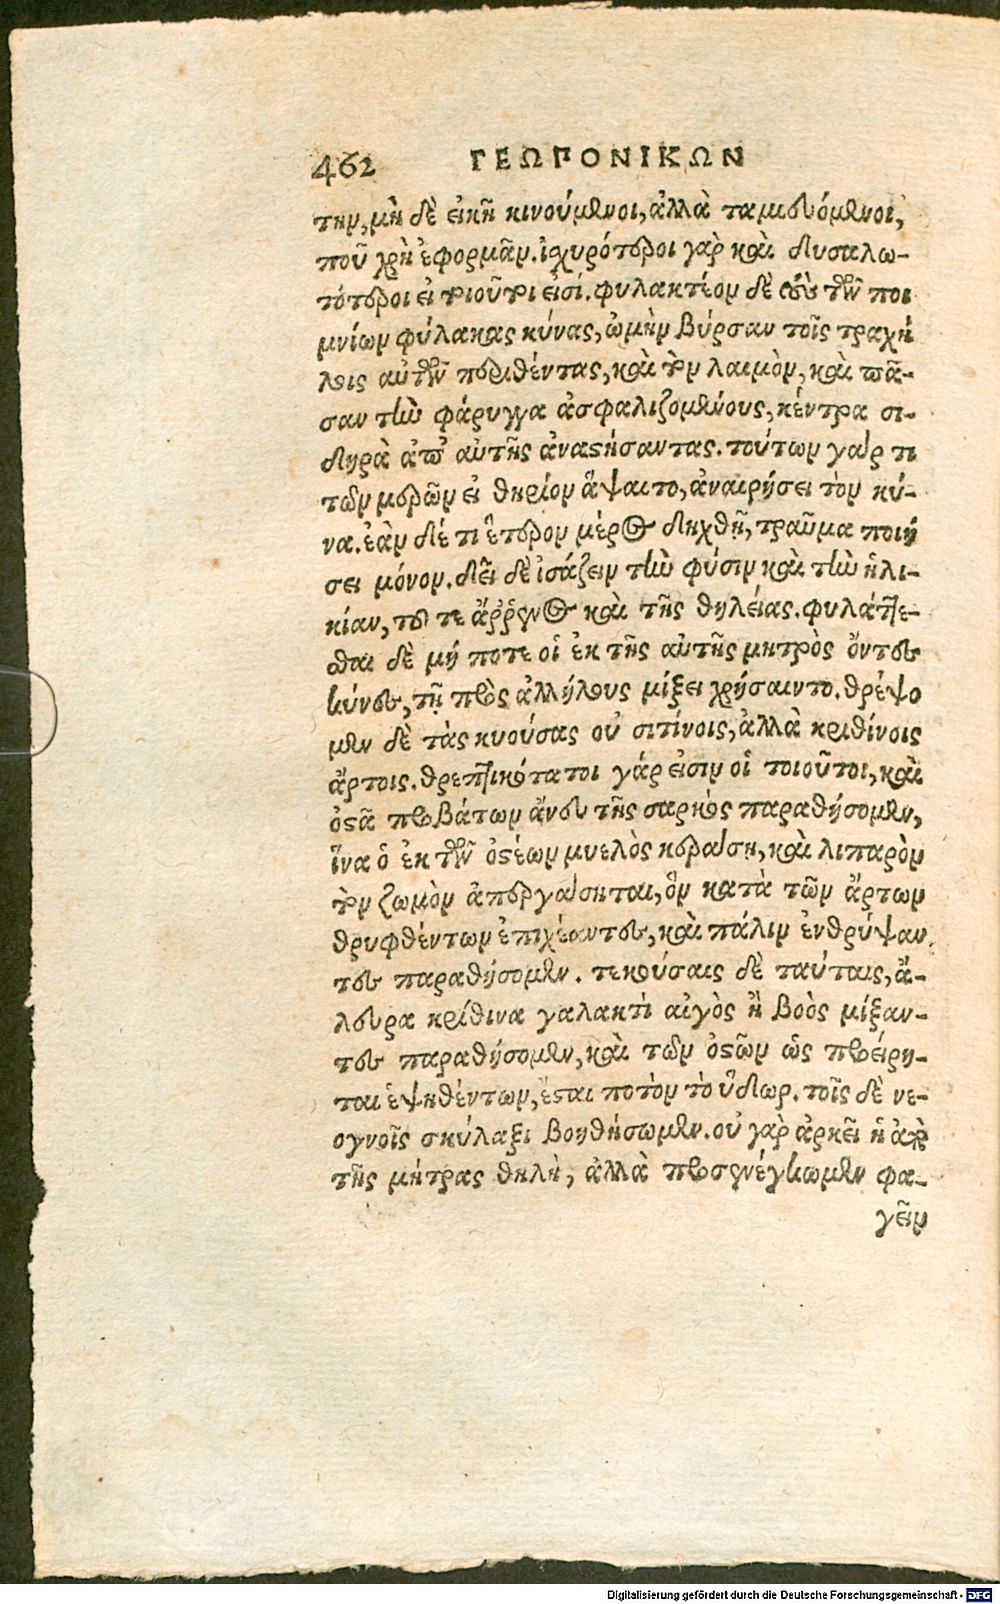 462 ΓΕΩΠΟΝΙΚΩΝ
την, μὴ δὲ εἰκῆ κινούμενοι, ἀλλὰ ταμιευόμενοι,
ποῦ χρὴ ἐφορμᾶν. ἰσχυρότεροι γὰρ καὶ δυσαλω-
τότεροι εἰ τοιοῦτοι εἰσί. φυλακτέον δὲ τοὺς τῶν ποι
μνίων φύλακας κύνας, ὠμὴν βύρσαν τοῖς τραχή
λοις αὐτῶν περιθέντας, καὶ τὸν λαιμὸν, καὶ πᾶ-
σαν τὴν φάρυγγα ἀσφαλιζομένους, κέντρα σι-
δηρὰ ἀπ' αὐτῆς ἀναστήσαντας. τούτων γάρ τι
τῶν μερῶν εἰ θηρίον ἅψαιτο, ἀναιρήσει τὸν κύ-
να. ἐὰν δέ τι ἕτερον μέρος δηχθῇ, τραῦμα ποιή
σει μόνον. δεῖ δὲ ἰσάζειν τὴν φύσιν καὶ τὴν ἡλι-
κίαν, τοῦ τε ἄῤῥενος καὶ τῆς θηλείας. φυλάττε-
σθαι δὲ μή ποτε οἱ ἐκ τῆς αὐτῆς μητρὸς ὄντες
κύνες, τῇ πρὸς ἀλλήλους μίξει χρήσαιντο. θρέψο
μεν δὲ τὰς κυούσας οὐ σιτίνοις, ἀλλὰ κριθίνοις
ἄρτοις. θρεπτικότατοι γάρ εἰσιν οἱ τοιοῦτοι, καὶ
ὀστᾶ προβάτων ἄνευ τῆς σαρκὸς παραθήσομεν,
ἵνα ὁ ἐκ τῶν ὀστέων μυελὸς κεράσῃ, καὶ λιπαρὸν
τὸν ζωμὸν ἀπεργάσηται, ὃν κατὰ τῶν ἄρτων
θρυφθέντων ἐπιχέαντες, καὶ πάλιν ἐνθρύψαν
τες παραθήσομεν. τεκούσαις δὲ ταύταις, ἄ-
λευρα κρίθινα γαλακτὶ αἰγὸς ἢ βοὸς μίξαν-
τες παραθήσομεν, καὶ τῶν ὀστῶν ὡς προείρη-
ται ἑψηθέντων, ἔσται ποτὸν τὸ ὕδωρ. τοῖς δὲ νε-
ογνοῖς σκύλαξι βοηθήσωμεν. οὐ γὰρ ἀρκεῖ ἡ ἀπὸ
τῆς μήτρας θηλὴ, ἀλλὰ προσενέγκωμεν φα-
γεῖν
Digitalisierung gefördert durch die Deutsche Forschungsgemeinschaft - DFG